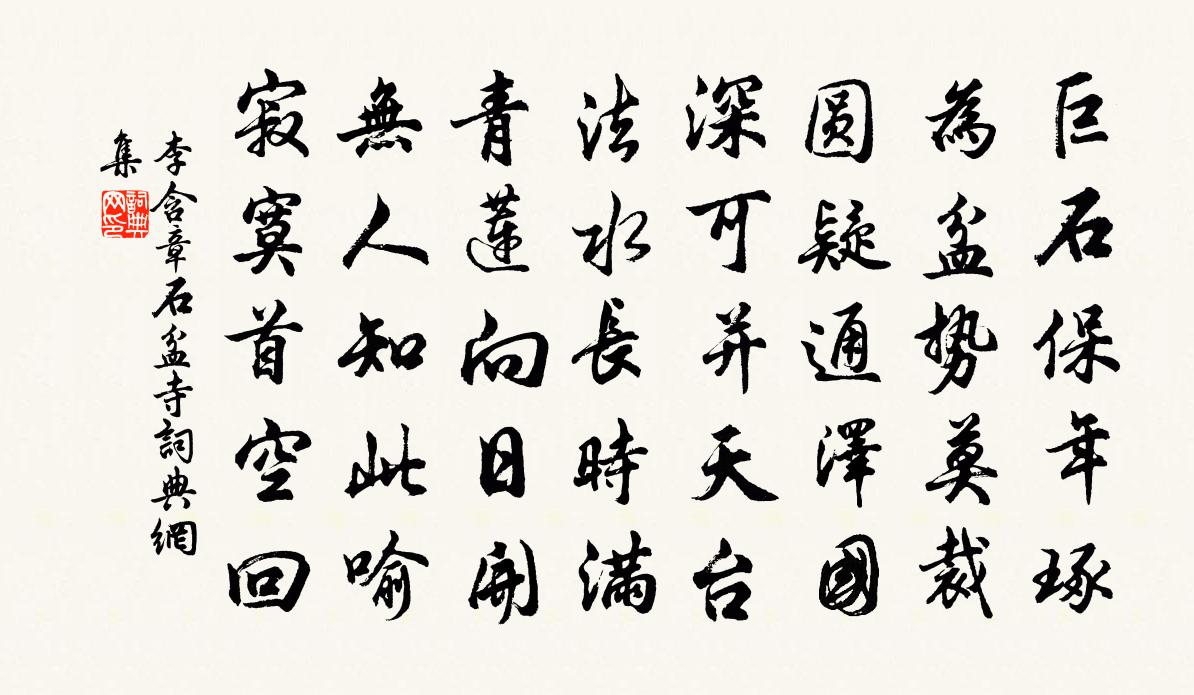 巨石保年琢
為盆勢莫裁
圆疑通澤國
深可并天台
法水長時滿
青蓮向日開
無人知此喻
寂寞首空回
李含章石盆寺詞典網
集
詞典网印